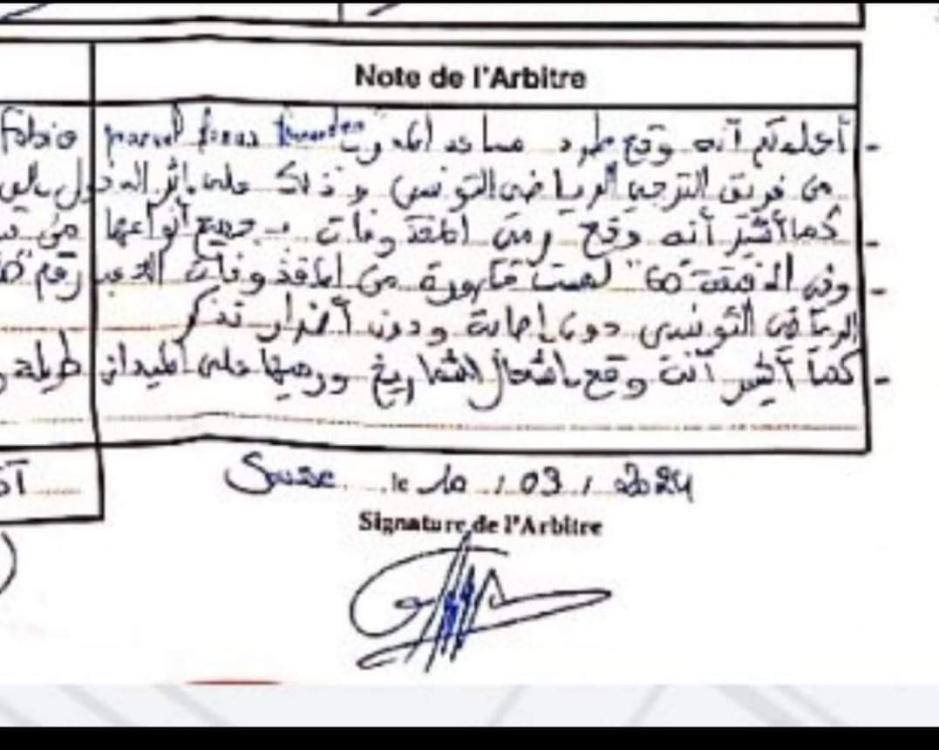 Note de l'Arbitre
- أعلمكم أنه وقع طرد مساعد المدرب Fabio
من فريق الترجي الرياضي التونسي وذلك على إثر
- كما أشير أنه وقع رمي المقذوفات بجميع أنواعها من
- وفي الدقيقة "60" لمست قارورة من المقذوفات رقم
الرياضي التونسي دون إصابة ودون أضرار تذكر
- كما أشير أنه وقع إشعال الشماريخ ورميها على الميدان طيلة
Sousse le 10 / 03 / 2024
Signature de l'Arbitre